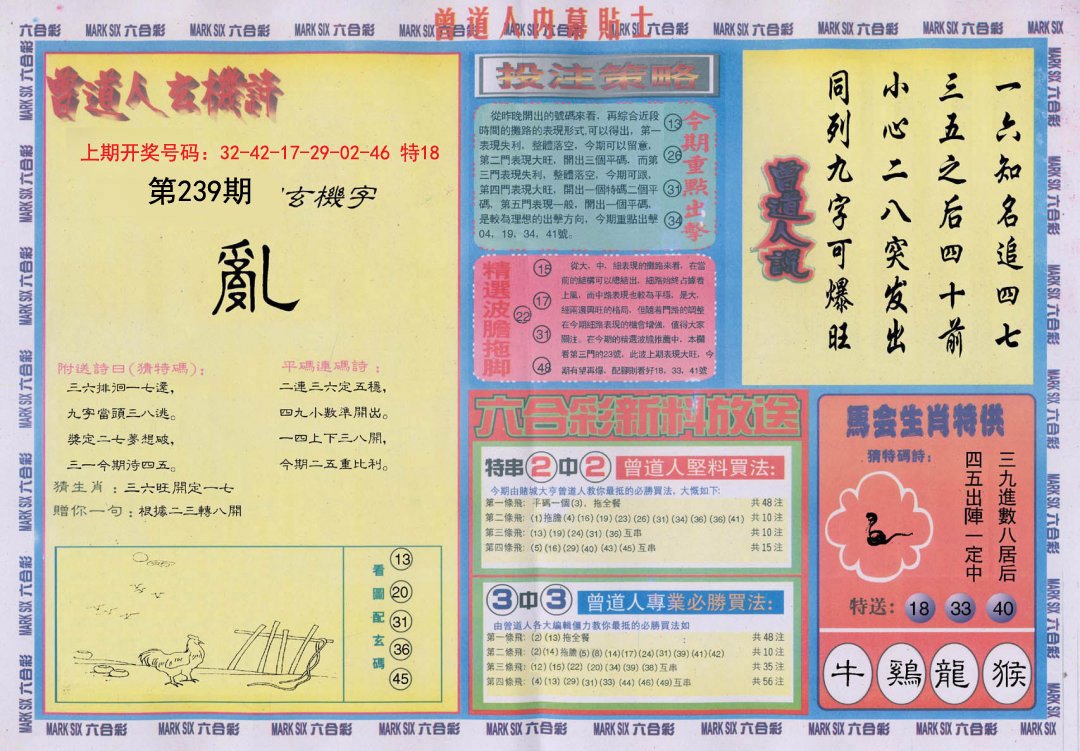 曾道人内幕貼士
六合彩 MARK SIX 六合彩 MARK SIX 六合彩 MARK SIX 六合彩 MARK SIX 六合彩 MARK SIX 六合彩 MARK SIX 六合彩 MARK SIX 六合彩 MARK SIX 六合彩 MARK SIX
曾道人玄機詩
上期开奖号码：32-42-17-29-02-46 特18
第239期
玄機字
亂
附送詩曰(猜特碼)：
三六排徊一七邊，
九字當頭三八逃。
獎定二七夢想破，
三一今期待四五。
平碼連碼詩：
二連三六定五穩，
四九小數準開出。
一四上下三八開，
今期二五重比利。
猜生肖：三六旺開定一七
贈你一句：根據二三轉八開
看圖配玄碼
13
20
31
36
45
投注策略
從昨晚開出的號碼來看，再綜合近段
時間的攤路的表現形式,可以得出，第一
表現失利，整體落空，今期可以留意，
第二門表現大旺，開出三個平碼，而第
三門表現失利，整體落空，今期可跟，
第四門表現大旺，開出一個特碼二個平
碼，第五門表現一般，開出一個平碼，
是較為理想的出擊方向，今期重點出擊
04、19、34、41號。
13
26
31
34
今期重點出擊
精選波膽拖脚
15
17
22
31
48
從大、中、細表現的攤路來看，在當
前的結構可以總結出，細路始終占據着
上風，而中路表現也較為平穩，是大、
細兩邊興旺的格局，但隨着門路的調整
在今期細路表現的機會增強，值得大家
關注。在今期的精選波膽推薦中，本欄
看第三門的23號，此波上期表現大旺，今
期有望再爆，配腳則看好18、33、41號
曾道人說
一六知名追四七
三五之后四十前
小心二八突发出
同列九字可爆旺
六合彩新料放送
特串2中2 曾道人堅料買法：
今期由賭城大亨曾道人教你最抵的必勝買法，大慨如下：
第一條飛：平碼一個(3)，拖全餐 共48注
第二條飛：(1)拖膽(4)(16)(19)(23)(26)(31)(34)(36)(36)(41) 共10注
第三條飛：(13)(19)(24)(31)(36)互串 共10注
第四條飛：(5)(16)(29)(40)(43)(45)互串 共15注
3中3 曾道人專業必勝買法：
由曾道人各大編輯僵力教你最抵的必勝買法如
第一條飛：(2)(13)拖全餐 共48注
第二條飛：(2)(14)拖膽(5)(8)(14)(17)(24)(31)(39)(41)(42) 共10注
第三條飛：(12)(15)(22)(20)(34)(39)(38)互串 共35注
第四條飛：(4)(13)(29)(31)(33)(44)(46)(49)互串 共56注
馬会生肖特供
猜特碼詩：
三九進數八居后
四五出陣一定中
特送：18 33 40
牛 鷄 龍 猴
MARK SIX 六合彩 MARK SIX 六合彩 MARK SIX 六合彩 MARK SIX 六合彩 MARK SIX 六合彩 MARK SIX 六合彩 MARK SIX 六合彩 MARK SIX 六合彩 MARK SIX 六合彩 MARK SIX